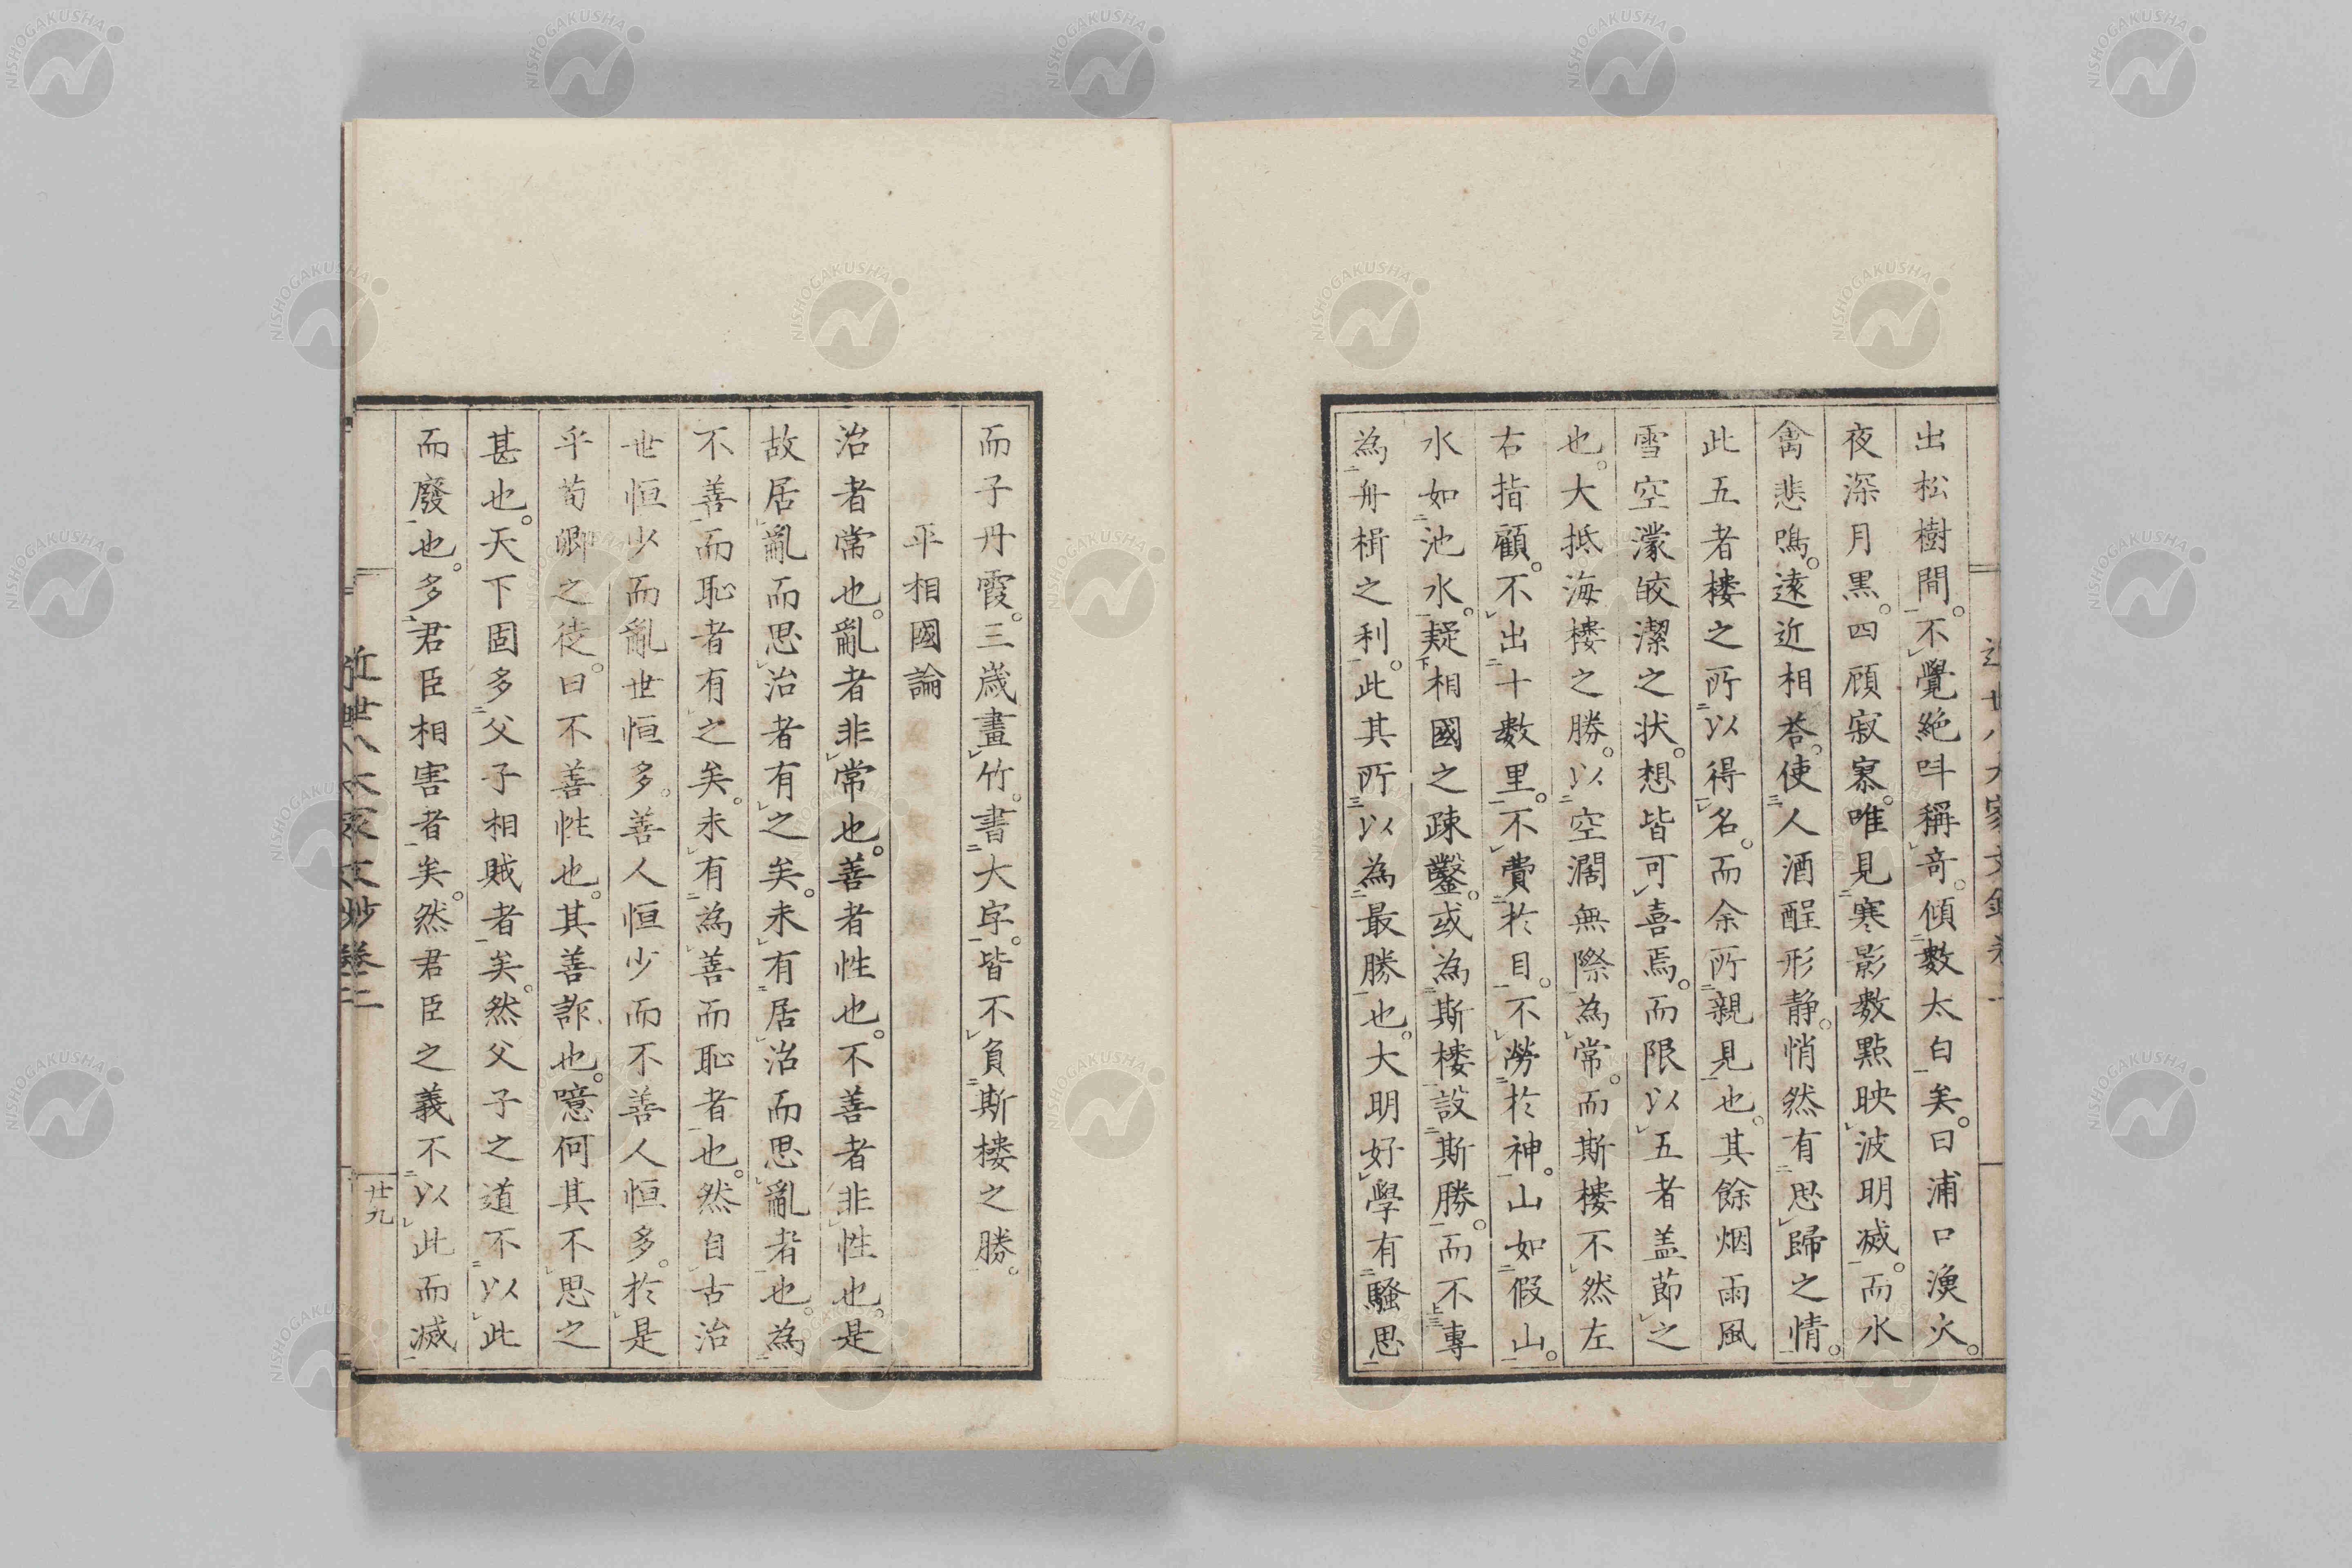 出松樹間。不覺絶叫稱奇。傾數太白矣。曰浦口漁火。
夜深月黒。四顧寂寞。唯見寒影數點映波明滅。而水
禽悲鳴。遠近相荅。使人酒醒形静。悄然有思歸之情。
此五者楼之所以得名。而余所親見也。其餘烟雨風
雪空濛皎潔之状。想皆可喜焉。而限以五者盖節之
也。大抵海楼之勝。以空濶無際為常。而斯楼不然左
右指顧。不出十數里。不費於目。不勞於神。山如假山。
水如池水。疑相國之疎鑿。或為斯楼設斯勝。而不專
為舟楫之利。此其所以為最勝也。大明好學有騷思
而子丹霞。三歳畫竹。書大字。皆不負斯楼之勝。
平相國論
治者常也。亂者非常也。善者性也。不善者非性也。是
故居亂而思治者有之矣。未有居治而思亂者也。為
不善而恥者有之矣。未有為善而恥者也。然自古治
世恒少而亂世恒多。善人恒少而不善人恒多。於是
乎荀卿之徒。曰不善性也。其善詐也。噫何其不思之
甚也。天下固多父子相賊者矣。然父子之道不以此
而廢也。多君臣相害者矣。然君臣之義不以此而滅
近世八大家文抄卷二
廿九
NISHOGAKUSHA